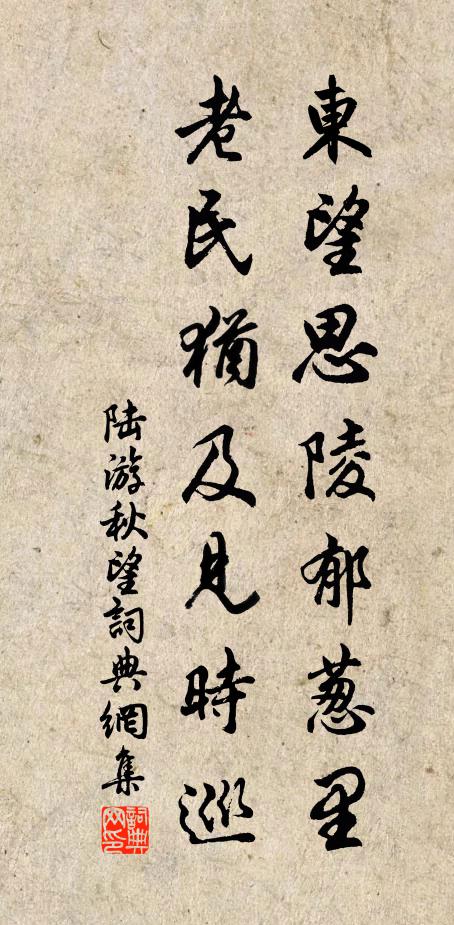 東望思陵郁葱里
老民猶及見時巡
陆游秋望詞典網集
詞典网印